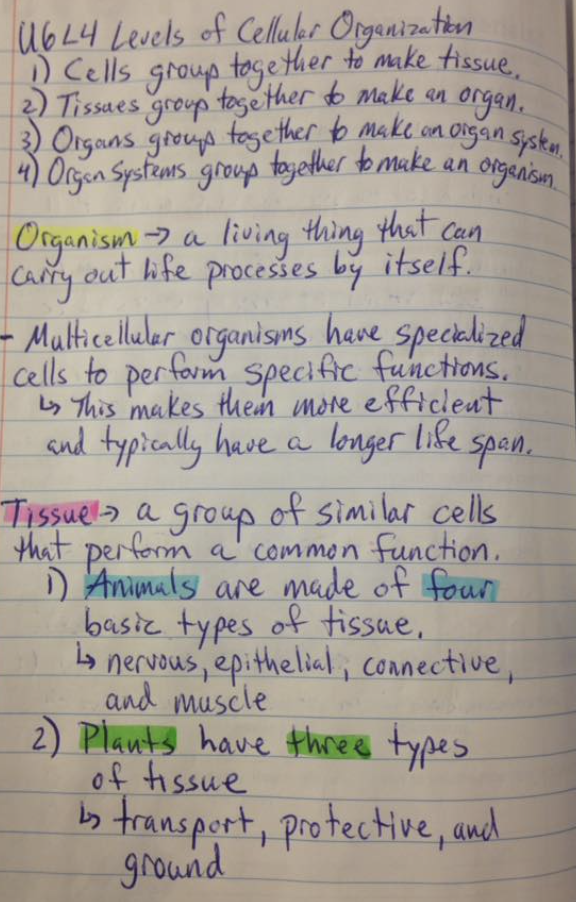 U6L4 Levels of Cellular Organization
1) Cells group together to make tissue.
2) Tissues group together to make an organ.
3) Organs group together to make an organ system.
4) Organ Systems group together to make an organism
Organism → a living thing that can
carry out life processes by itself.
- Multicellular organisms have specialized
cells to perform specific functions.
↳ This makes them more efficient
and typically have a longer life span.
Tissue → a group of similar cells
that perform a common function.
1) Animals are made of four
basic types of tissue.
↳ nervous, epithelial, connective,
and muscle
2) Plants have three types
of tissue
↳ transport, protective, and
ground